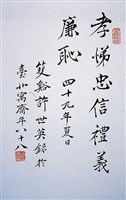 孝悌忠信禮義
廉恥 四十九年夏日
芰谿許世英錄於
臺北寓齋年八十八